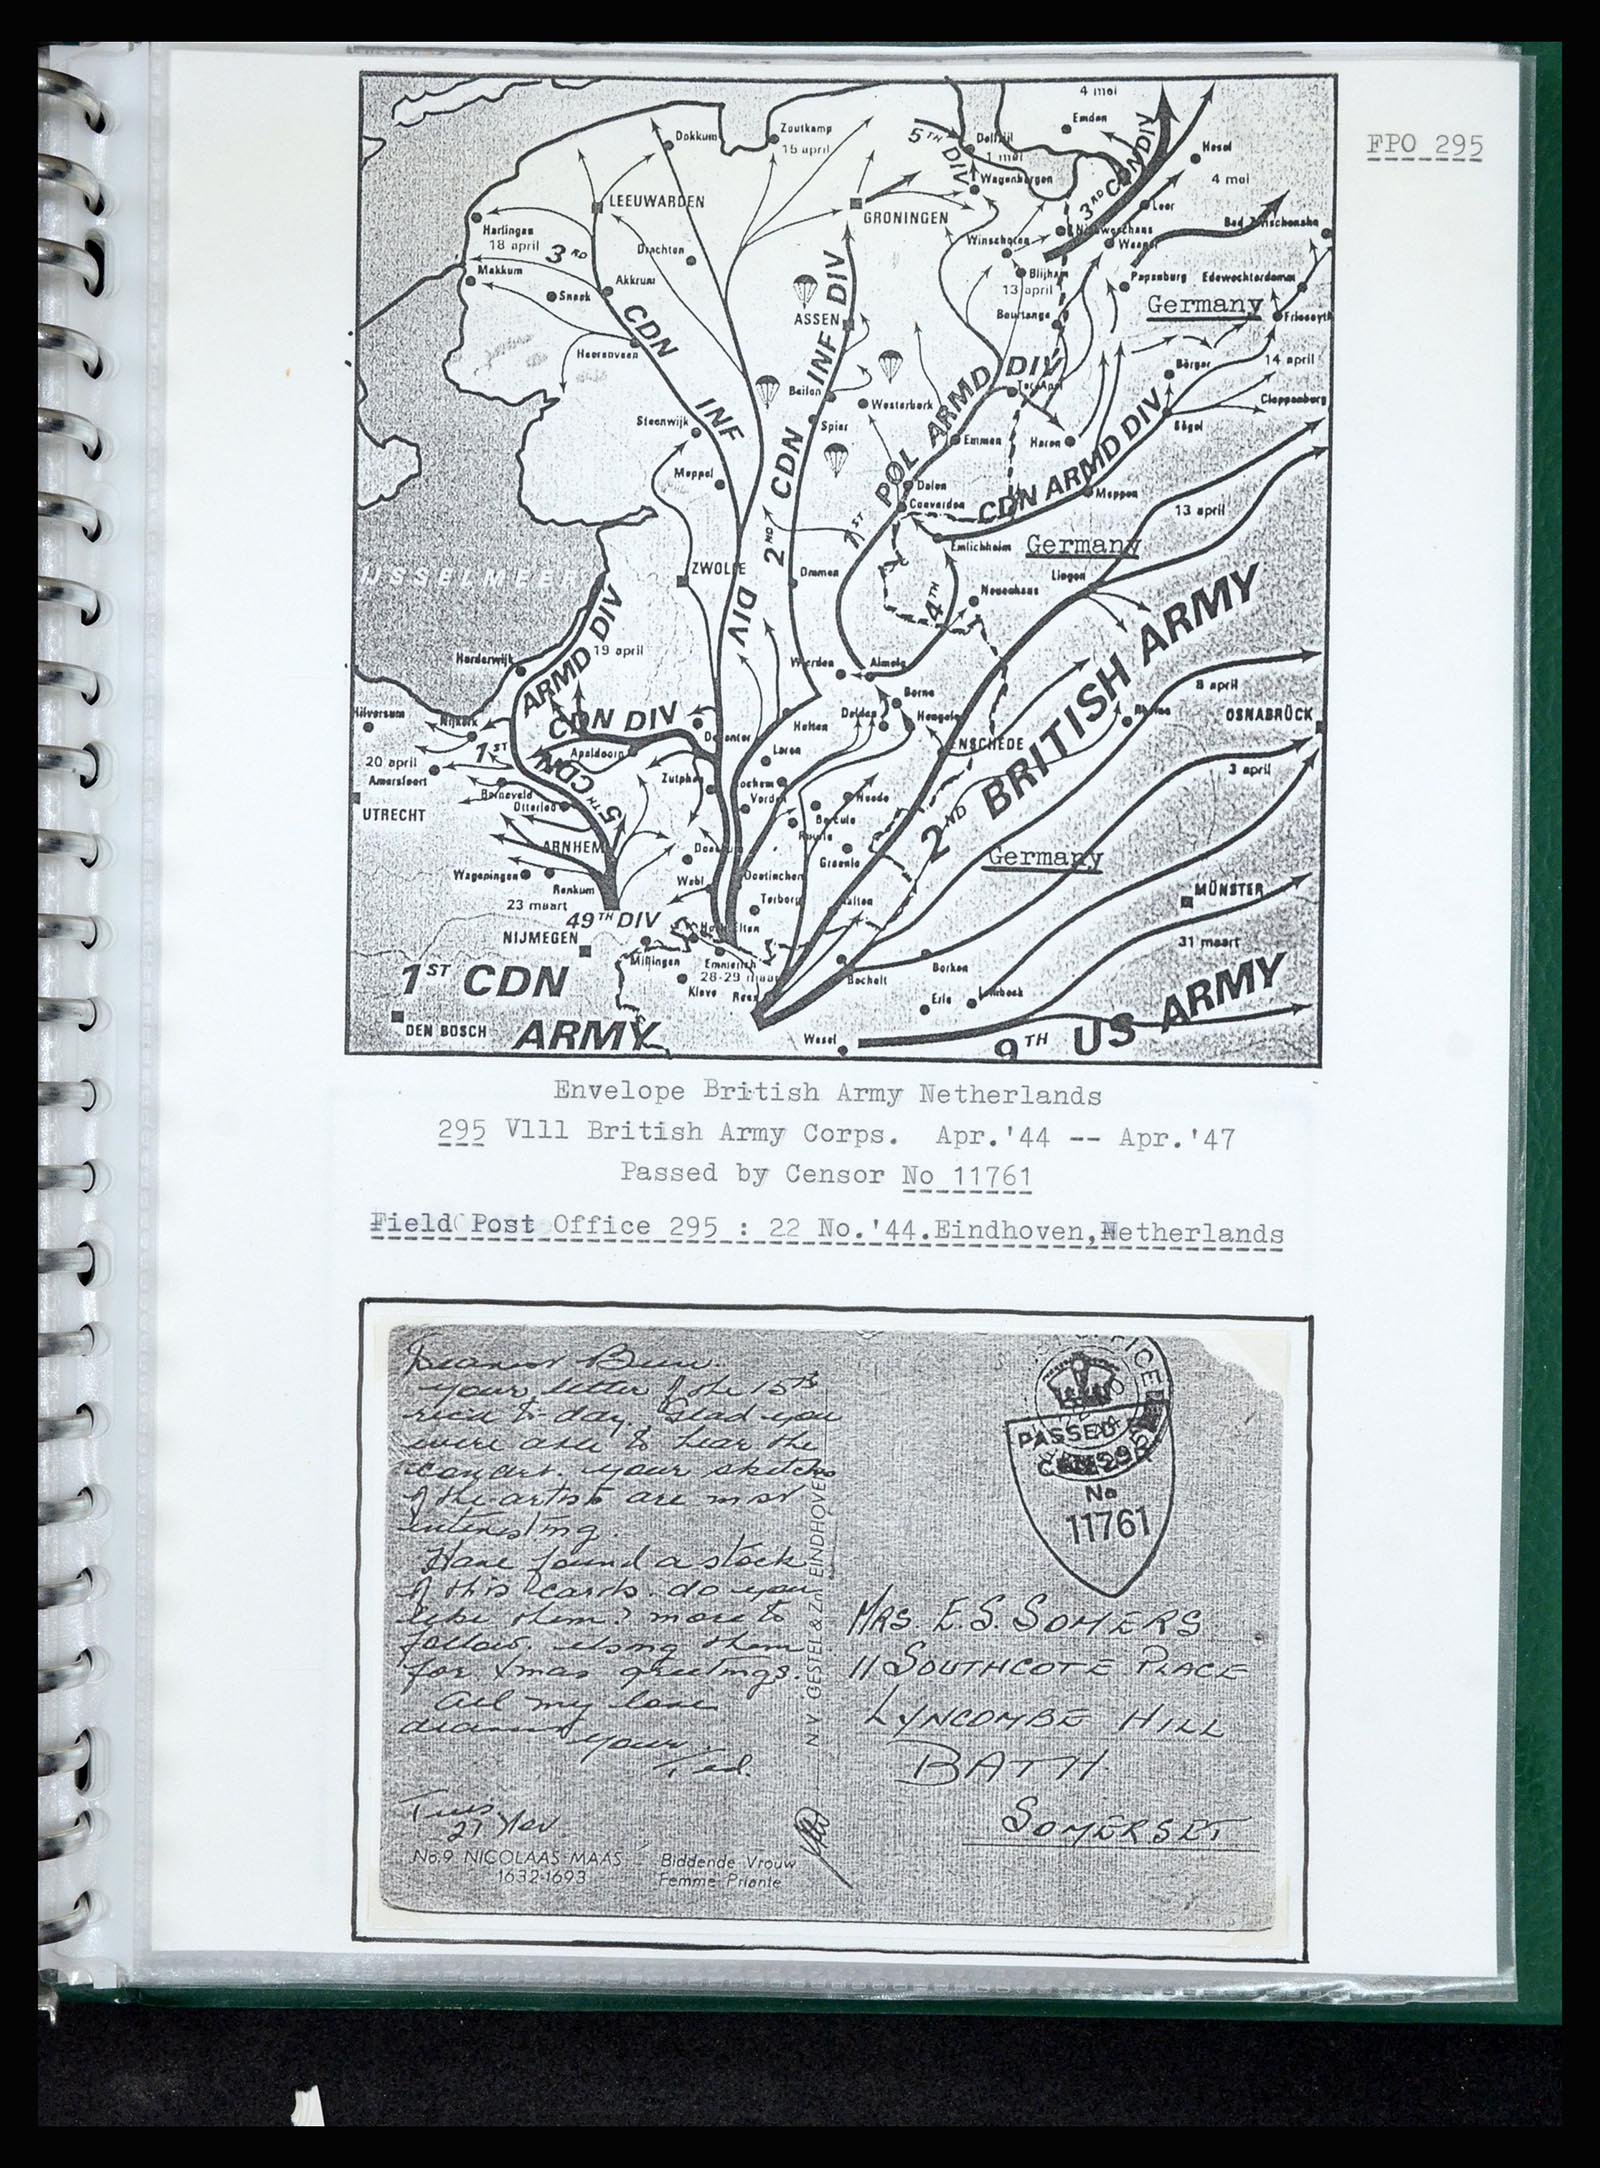 FPO 295
4 mei
Emden
Dokkum
Zoutkamp
15 april
5TH DIV
Delfzijl
1 mei
Wagenborgen
3RD CDN DIV
Hesel
4 mei
LEEUWARDEN
GRONINGEN
Leer
Harlingen
18 april
3RD CDN INF DIV
Drachten
Winschoten
Nieuweschans
Weener
Makkum
Sneek
Akkrum
Blijham
13 april
Papenburg
Edewechterdamm
Germany
ASSEN
Bourtange
Friesoyth
Heerenveen
2ND CDN INF DIV
14 april
Börger
Beilen
Westerbork
1ST POL ARMD DIV
Ter Apel
Cloppenburg
Steenwijk
Spier
Emmen
Haren
Sögel
Meppel
Dalen
Coevorden
4TH CDN ARMD DIV
Meppen
13 april
Emlichheim
Germany
IJSSELMEER
ZWOLLE
Ommen
Lingen
Neuenhaus
Harderwijk
19 april
Wierden
Almelo
Borne
8 april
Hilversum
Nijkerk
5TH CDN ARMD DIV
1ST CDN DIV
Holten
Delden
Hengelo
Rheine
OSNABRÜCK
Deventer
ENSCHEDE
2ND BRITISH ARMY
20 april
Amersfoort
Apeldoorn
Laren
3 april
Zutphen
Lochem
Barneveld
Otterloo
Vorden
Neede
UTRECHT
Borculo
Ruurlo
ARNHEM
Groenlo
Germany
Wageningen
Renkum
Wehl
Doetinchem
MÜNSTER
23 maart
Terborg
Aalten
49TH DIV
NIJMEGEN
31 maart
Millingen
Emmerich
28-29 maart
Borken
1ST CDN ARMY
Kleve
Rees
Bocholt
Erle
Lembeck
DEN BOSCH
Wesel
9TH US ARMY
Envelope British Army Netherlands
295 V111 British Army Corps. Apr.'44 -- Apr.'47
Passed by Censor No 11761
Field Post Office 295 : 22 No.'44.Eindhoven,Netherlands
Dearest
your letter of the 15th
recd to-day. Glad you
were able to hear the
concert. your sketches
of the artists are most
interesting.
Have found a stock
of this cards. do you
like them? more to
follow. using them
for Xmas greetings.
All my love
dearest
your
Ted.
Tues
21 Nov.
No.9 NICOLAAS MAAS
1632-1693
Biddende Vrouw
Femme Priante
N.V. GESTEL & Zn EINDHOVEN
PASSED
CENSOR
No
11761
MRS. E. S. SOMERS
11 SOUTHCOTE PLACE
LYNCOMBE HILL
BATH
SOMERSET